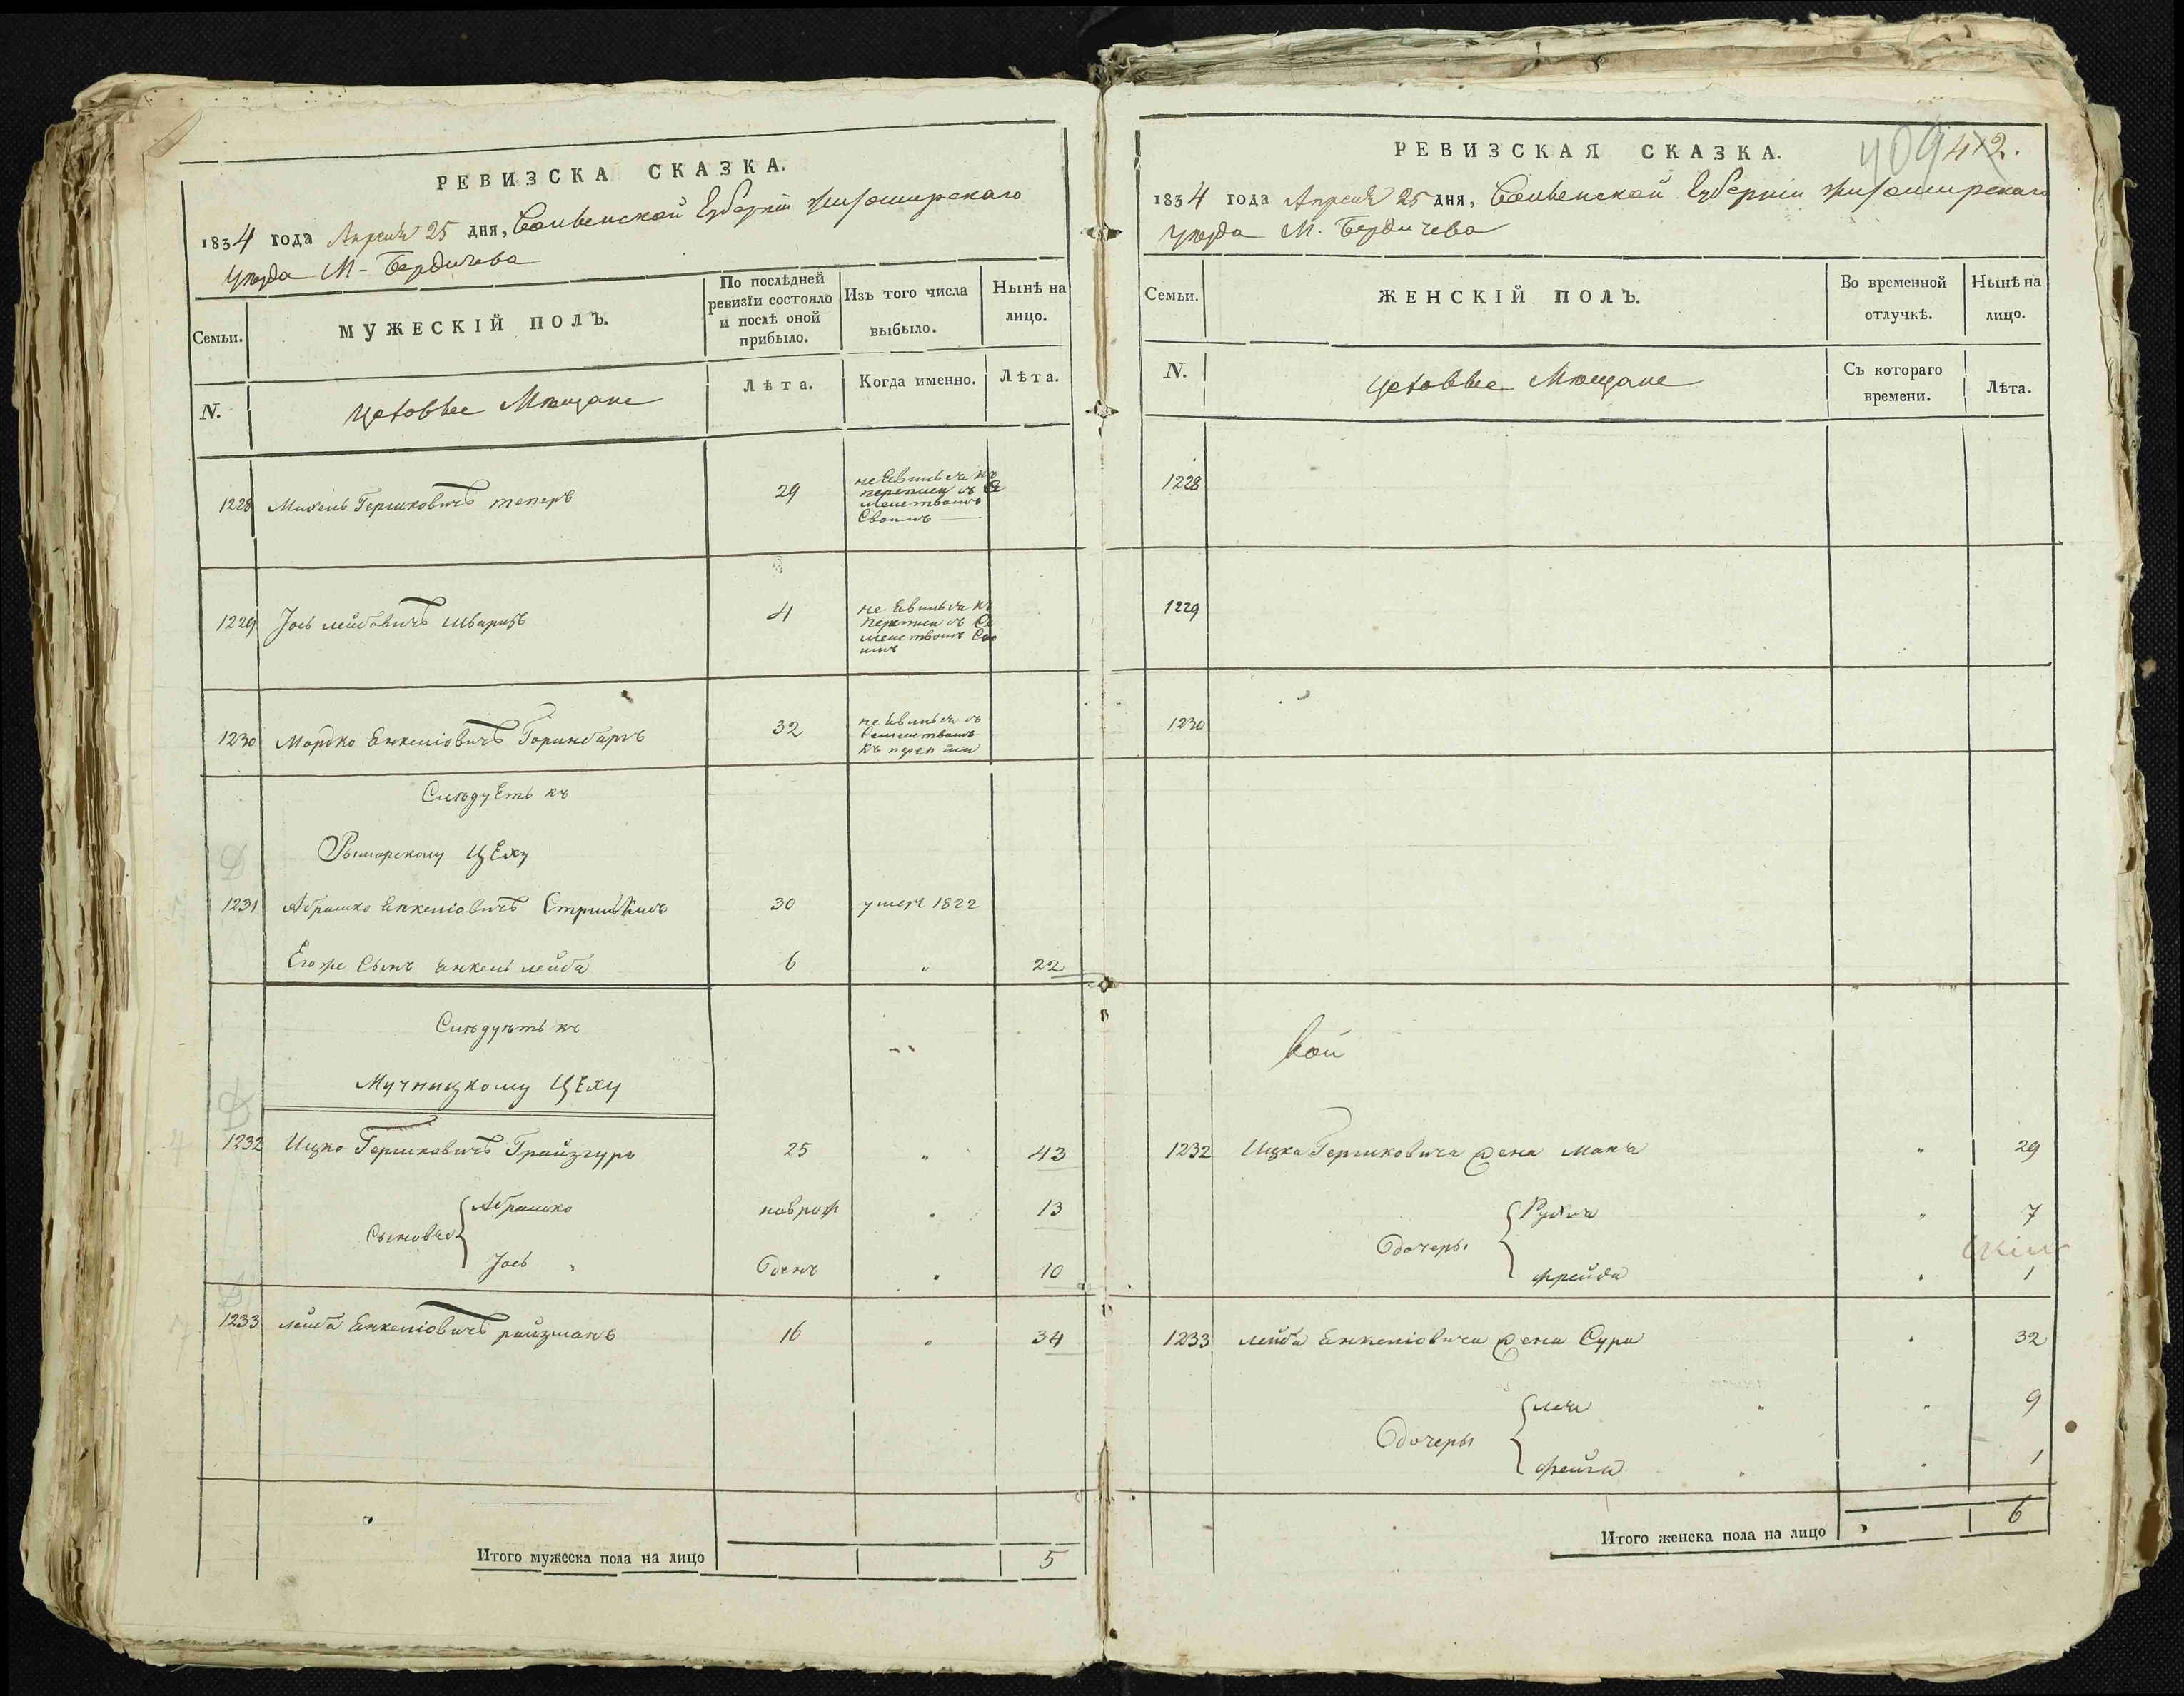 РЕВИЗСКА СКАЗКА.
1834 года Апреля 25 дня, Волынской Губерніи Житомирскаго
Уезда М. Бердичева
Семьи.
МУЖЕСКІЙ ПОЛЪ.
По послѣдней ревизіи состояло и послѣ оной прибыло.
Изъ того числа выбыло.
Нынѣ на лицо.
N.
Цеховые Мещане
Лѣта.
Когда именно.
Лѣта.
1228 Гершковичъ 29 не евилься къ
переписи съ Се
меиствомъ
Своимъ
1229 Іось Лейбовичъ Шварцъ 4 не евилься къ
переписи съ Се
меиствомъ Сво
имъ
1230 Мордко Енкеліовичъ 32 не евилься съ
Семеиствомъ
къ переписи
Следуеть къ
Рымарскому Цеху
1231 Абрашко Енкеліовичъ 30 умеръ 1822
Егоже Сынъ Енкель Лейба 6 " 22
Следуеть къ
Мучницкому Цеху
1232 Ицко Гершковичъ Грайзгуръ 25 " 43
Сыновъе { Абрашко 13
Іось " 10
1233 Лейба Енкеліовичъ райзманъ 16 " 34
Итого мужеска пола на лицо 5
РЕВИЗСКАЯ СКАЗКА.
409 412.
1834 года Апреля 25 дня, Волынской Губерніи Житомирскаго
Уезда М. Бердичева
Семьи.
ЖЕНСКІЙ ПОЛЪ.
Во временной отлучкѣ.
Нынѣ на лицо.
N.
Цеховые Мещане
Съ котораго времени.
Лѣта.
1228
1229
1230
1232 Ицка Гершковича жена " 29
Дочеры { Рухля " 7
Фрейда " 1
1233 Лейба Енкеліовича жена Сура " 32
Дочеры { Лея " 9
Фейга " 1
Итого женска пола на лицо 6